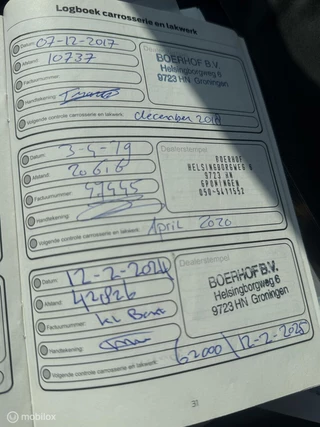 Logboek carrosserie en lakwerk
Datum: 07-12-2017
Afstand: 10737
Factuurnummer:
Handtekening:
Volgende controle carrosserie en lakwerk: december 2018
Dealerstempel
BOERHOF B.V.
Helsingborgweg 6
9723 HN Groningen
Datum: 3-4-19
Afstand: 20616
Factuurnummer: 47445
Handtekening:
Volgende controle carrosserie en lakwerk: April 2020
Dealerstempel
BOERHOF
HELSINGBORGWEG
9723 HN
GRONINGEN
050-5411552
Datum: 12-2-2024
Afstand: 42826
Factuurnummer:
Handtekening:
Volgende controle carrosserie en lakwerk: 62000 | 12-2-2025
Dealerstempel
BOERHOF B.V.
Helsingborgweg 6
9723 HN Groningen
31
mobilox